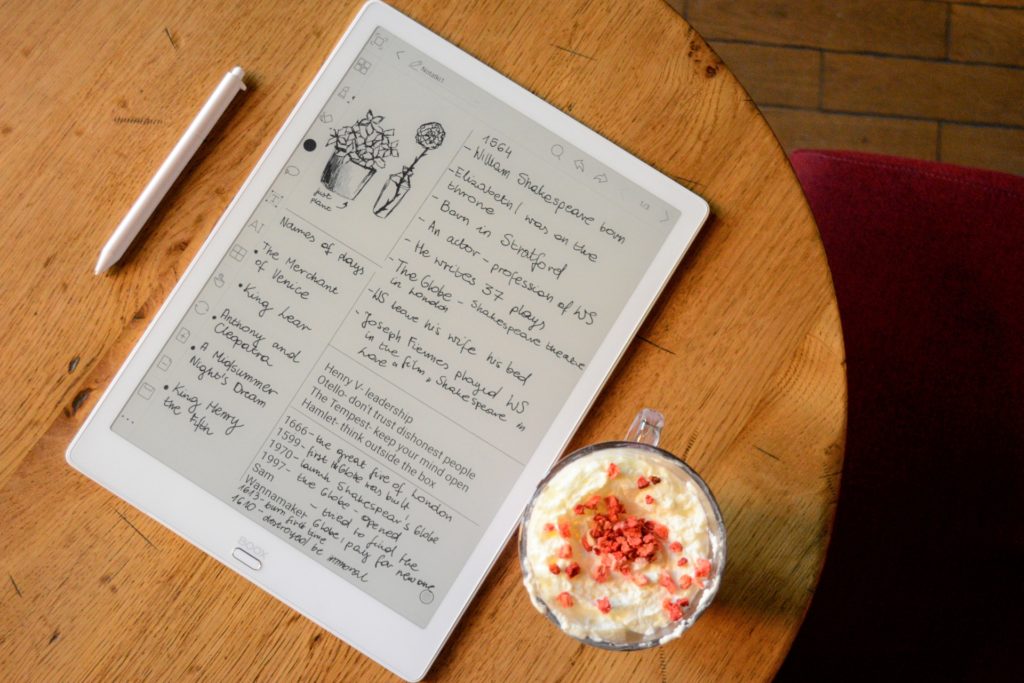 Notatki1
1/3
just
plant
Names of plays
• The Merchant
of Venice
• King Lear
• Anthony and
Cleopatra
• A Midsummer
Night's Dream
• King Henry
the Fifth
1564
- William Shakespeare born
- Elizabeth I was on the
throne
- Born in Stratford
- An actor - profession of WS
- He writes 37 plays
- The Globe - Shakespeare theatre
in London
- WS leave his wife his bed
- Joseph Fiennes played WS
in the film „ Shakespeare in
Love "
Henry V- leadership
Otello- don't trust dishonest people
The Tempest- keep your mind open
Hamlet- think outside the box
1666 - the great fire of London
1599 - first Globe was built
1970 - launch Shakespeare's Globe
1997 - the Globe - opened
Sam
Wannamaker - tried to find the
Globe, pay for new one
1613 - burn first time
1610 - destroyed be immoral
BOOX